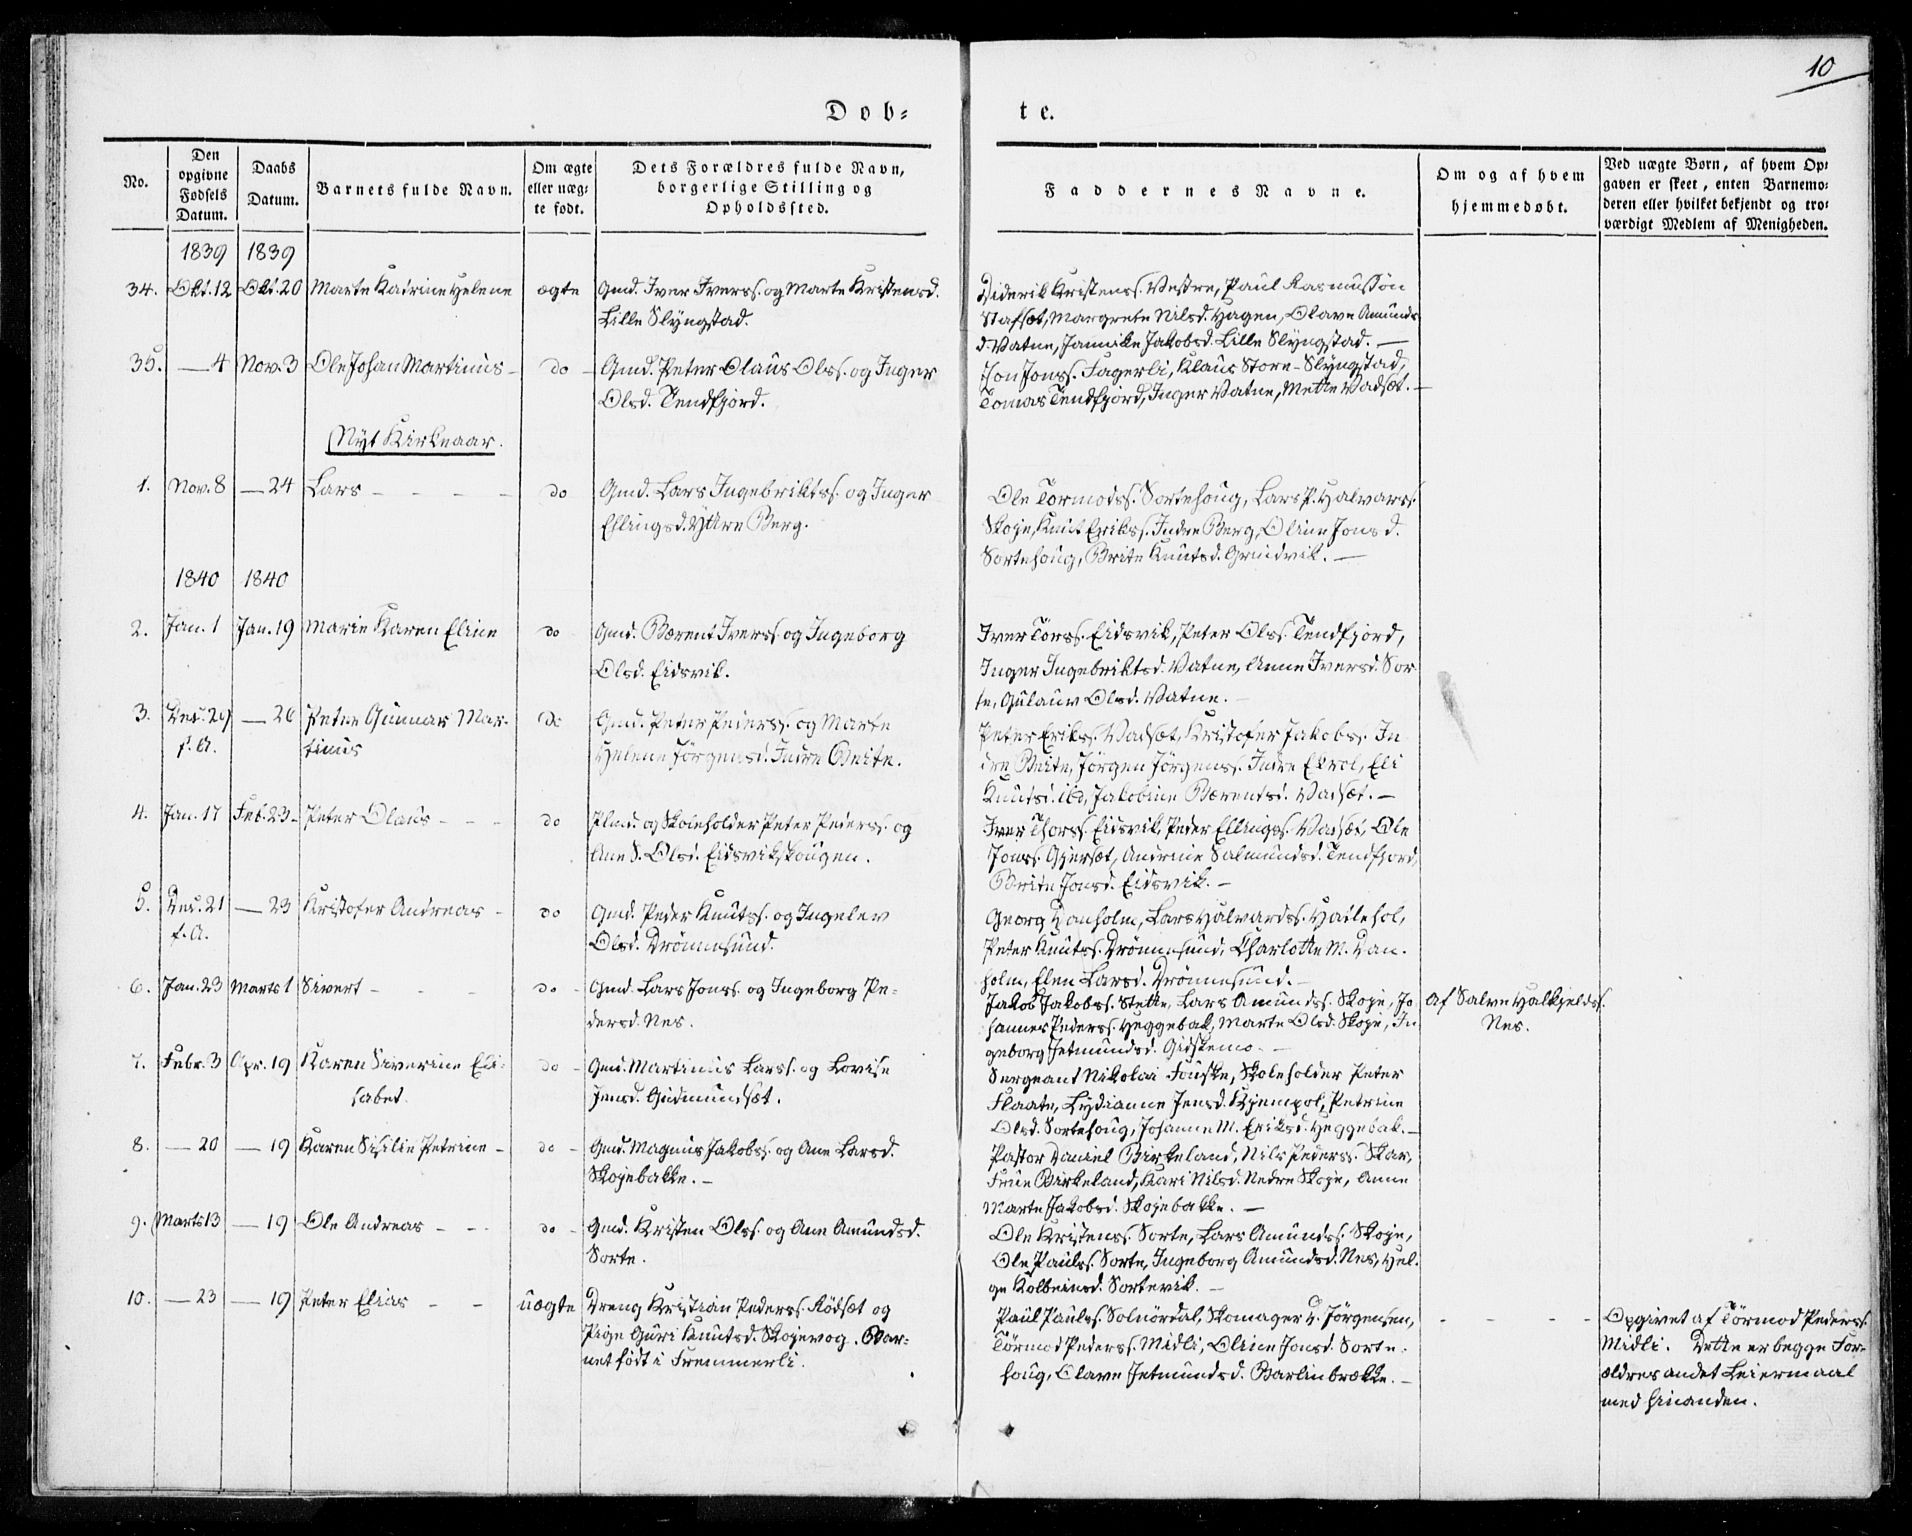 10
Døb-
te.
No.
Den
opgivne
Fødsels
Datum.
Daabs
Datum.
Barnets fulde Navn.
Om ægte
eller uæg-
te født.
Dets Forældres fulde Navn,
borgerlige Stilling og
Opholdssted.
Faddernes Navne.
Om og af hvem
hjemmedøbt.
Ved uægte Børn, af hvem Op-
gaven er skeet, enten Barnemo-
deren eller hvilket bekjendt og tro-
værdigt Medlem af Menigheden.
1839 1839
34. Okt. 12 Okt. 20 Marte Katrine Helene ægte Gmd. Iver Ivers. og Marte Kristensd.
Lille Slyngstad.
Diderik Kristens. Vestre, Paul Rasmussøn
Stafsæt, Margrete Nilsd. Hagen, Olave Amunds
d. Vatne, Jannike Jakobsd. Lille Slyngstad. —
35. — 4 Nov. 3 Ole Johan Martinus - do - Gmd. Peter Olaus Ols. og Inger
Olsd. Tendfjord.
Jon Jons. Fagerli, Klaus Store-Slyngstad,
Tomas Tendfjord, Inger Vatne, Mette Vadsæt. —
Nyt Kirkeaar.
1. Nov. 8 — 24 Lars - - - - do Gmd. Lars Ingebrikts. og Inger
Ellingsd. Yttre Berg.
Ole Tormods. Sortehoug, Lars P. Halvars.
Skoje, Knut Eriks. Indre Berg, Oline Jonsd.
Sortehoug, Brite Knutsd. Grindvik. —
1840 1840
2. Jan. 1 Jan. 19 Marie Karen Eline do Gmd. Bærent Ivers. og Ingeborg
Olsd. Eidsvik.
Iver Tors. Eidsvik, Peter Ols. Tendfjord,
Inger Ingebriktsd. Vatne, Anne Iversd. Sor-
te, Gulauv Olsd. Vatne. -
3. Des. 29 — 26 Petter Gunnar Mar- do Gmd. Peter Peders. og Marte
f. A. tinus
Helene Jørgensd. Indre Beite.
Peter Eriks. Vadsæt, Kristofer Jakobs. In-
dre Beite, Jørgen Jørgens. Indre Ekrol, Eli
Knutsd. ibd, Jakobine Bærentsd. Vadsæt. —
4. Jan. 17 Feb. 23 - Peter Olaus - - - do Plmd. og Skoleholder Peter Peders. og
Ane S. Olsd. Eidsvikskougen.
Iver Thors. Eidsvik, Peder Ellings. Vadsæt, Ole
Jons. Gjersæt, Andrine Salmundsd. Tendfjord,
Brite Jonsd. Eidsvik. -
5. Des. 21 — 23 Kristofer Andreas - do - Gmd. Peder Knuts. og Ingelev
f. A.
Olsd. Drønnesund.
Georg Danholm, Lars Halvards. Hailehol,
Peter Knuts. Drønnesund, Charlotte M. Dan-
holm, Elen Larsd. Drønnesund. -
6. Jan. 23 Marts 1 Sivert - - - do - Gmd. Lars Jons. og Ingeborg Pe-
dersd. Nes.
Jakob Jakobs. Stette, Lars Amunds. Skoje, Jo-
hannes Peders. Heggebak, Marte Olsd. Skoje, In-
geborg Jetmundsd. Gidskemo. -
Af Salve Halkjelds.
Nes.
7. Febr. 3 Apr. 19 Karen Siverine Eli- do - Gmd. Martinus Lars. og Lovise
sabet.
Jensd. Gudmundsæt.
Sergeant Nikolai Fouske, Skoleholder Peter
Flaate, Lydianne Jensd. Kjempol, Petrine
Olsd. Sortehoug, Johanne M. Eriksd. Heggebak. —
8. — 20 — 19 Karen Sisilie Petrine - do - Gmd. Magnus Jakobs. og Ane Larsd.
Skojebakke. -
Pastor Daniel Birkeland, Nils Peders. Skar,
Frue Birkeland, Kari Nilsd. Nedre Skoje, Anne
Marte Jakobsd. Skojebakke. —
9. Marts 13 — 19 Ole Andreas - - - do - Gmd. Kristen Ols. og Ane Amundsd.
Sorte.
Ole Kristens. Sorte, Lars Amunds. Skoje,
Ole Pauls. Sorte, Ingeborg Amundsd. Nes, Hel-
ge Kolbeinsd. Sortevik. -
10. — 23 — 19 Peter Elias - - uægte Dreng Kristian Peders. Rødsæt og
Pige Guri Knutsd. Skojevog. Bar-
net født i Fremmerli.
Paul Pauls. Solnørdal, Skomager D. Jørgensen,
Tormod Peders. Midli, Oline Jonsd. Sorte-
houg, Olave Jetmundsd. Barlinbrække. -
Opgivet af Tormod Peders.
Midli. Dette er begge For-
ældres andet Leiermaal
med hinanden.